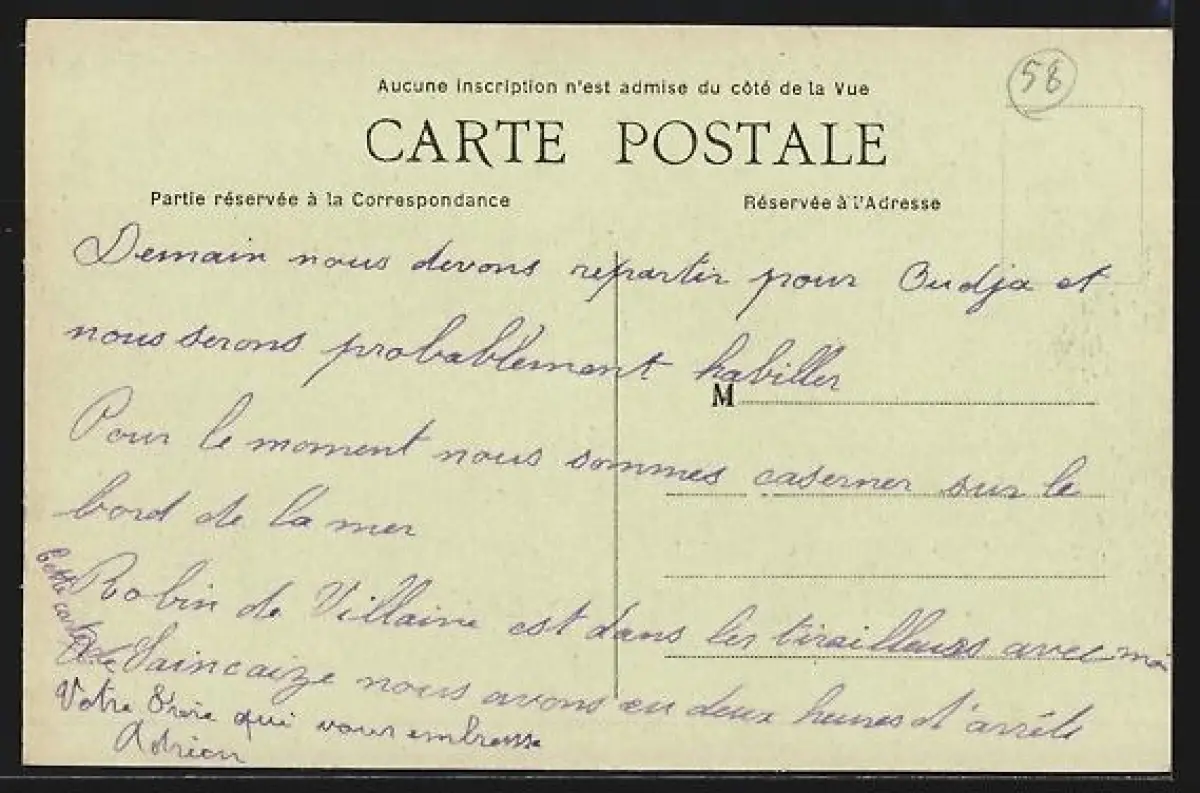 58
Aucune inscription n'est admise du côté de la Vue
CARTE POSTALE
Partie réservée à la Correspondance
Réservée à l'Adresse
Demain nous devons repartir pour Oudja et
nous serons probablement habiller
M
Pour le moment nous sommes caserner sur le
bord de la mer
Robin de Villaine est dans les tirailleurs avec moi
A Saincaize nous avons eu deux heures d'arrêts
Votre qui vous embrasse
Adrien
Cette carte